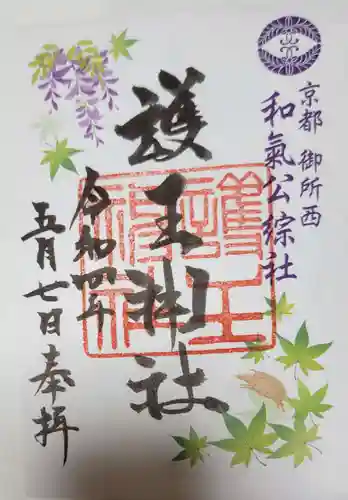 京都 御所西
和氣公綜社
護王神社
令和四年
五月七日 奉拝
護王神社